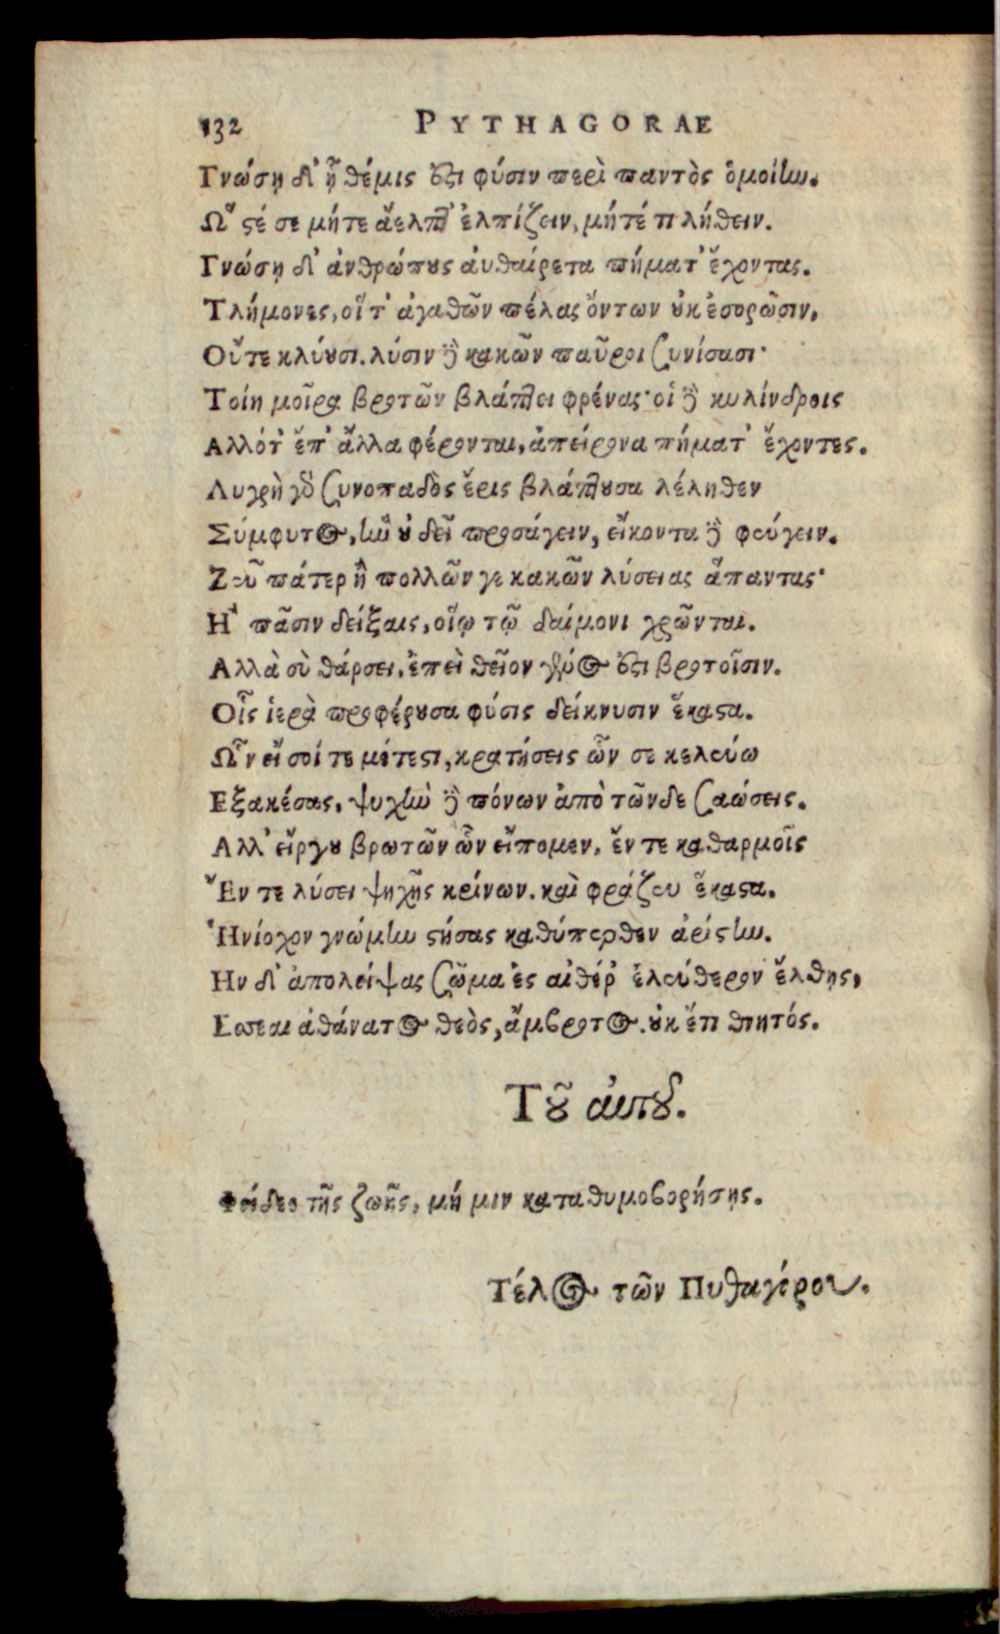 132 PYTHAGORAE
Γνώσῃ δ' ᾗ θέμις ὅτι φύσιν περὶ παντὸς ὁμοίην.
Ὥστέ σε μήτε ἄελπτ' ἐλπίζειν, μήτέ τι λήθειν.
Γνώσῃ δ' ἀνθρώπους αὐθαίρετα πήματ' ἔχοντας.
Τλήμονες, οἵ τ' ἀγαθῶν πέλας ὄντων οὐκ ἐσορῶσιν,
Οὔτε κλύουσι. λύσιν δὲ κακῶν παῦροι συνίσασι·
Τοίη μοῖρα βροτῶν βλάπτει φρένας· οἱ δὲ κυλίνδροις
Αλλότ' ἐπ' ἄλλα φέρονται, ἀπείρονα πήματ' ἔχοντες.
Λυγρὴ γὰρ συνοπαδὸς ἔρις βλάπτουσα λέληθεν
Σύμφυτος, ἣν οὐ δεῖ προσάγειν, εἴκοντα δὲ φεύγειν.
Ζεῦ πάτερ ἢ πολλῶν γε κακῶν λύσειας ἅπαντας·
Ἢ πᾶσιν δείξαις, οἵῳ τῷ δαίμονι χρῶνται.
Αλλὰ σὺ θάρσει, ἐπεὶ θεῖον γένος ἐστι βροτοῖσιν.
Οἷς ἱερὰ προφέρουσα φύσις δείκνυσιν ἕκαστα.
Ὧν εἴ σοί τε μέτεστι, κρατήσεις ὧν σε κελεύω
Εξακέσας, ψυχὴν δὲ πόνων ἀπὸ τῶνδε σαώσεις.
Αλλ' εἴργου βρωτῶν ὧν εἴπομεν, ἔν τε καθαρμοῖς
Ἔν τε λύσει ψηχῆς κρίνων. καὶ φράζευ ἕκαστα.
Ἡνίοχον γνώμην στήσας καθύπερθεν ἀρίστην.
Ην δ' ἀπολείψας σῶμα ἐς αἰθέρ' ἐλεύθερον ἔλθῃς,
Εσσεαι ἀθάνατος θεὸς, ἄμβροτος. οὐκ ἔτι θνητός.
Τοῦ αὐτοῦ.
Φείδεο τῆς ζωῆς, μή μιν καταθυμοβορήσῃς.
Τέλος τῶν Πυθαγόρου.